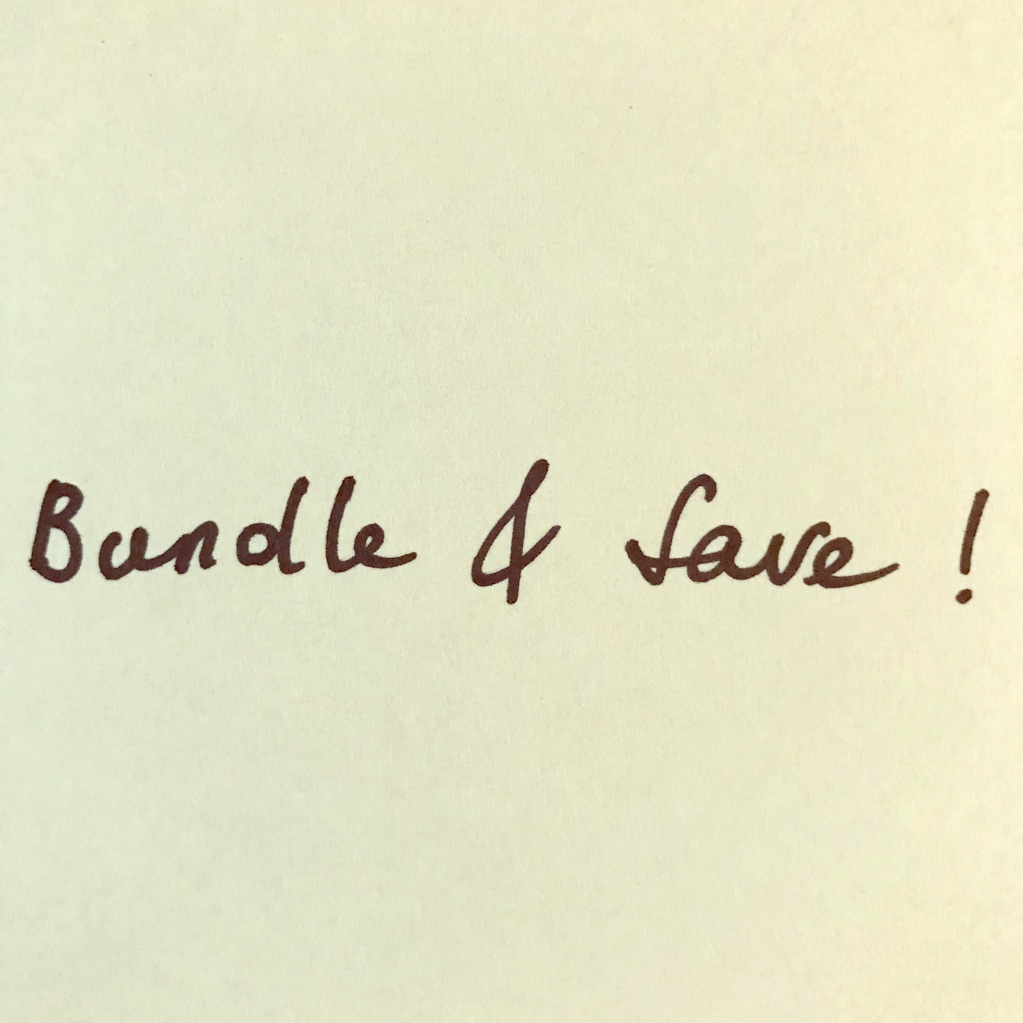 Bundle & Save !